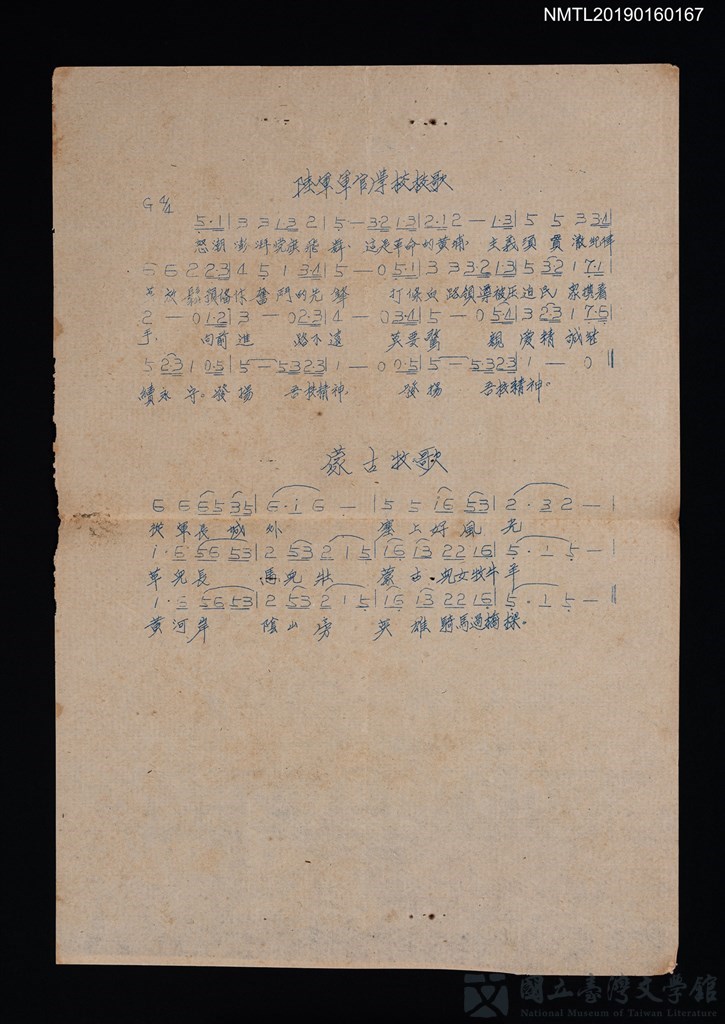 NMTL20190160167
陸軍軍官學校校歌
G 4/4
5·1|3 3 1·3 2|5 — 3·2 1·3|2·1 2 — 1·3|5 5 3 34|
怒潮澎湃党旗飛舞．這是革命的黃埔． 主義須貫澈紀律
6 6 2 23|4 5 1 34|5 — 0 5·1|3 3 32 13|5 32 1 7·1|
莫放鬆預備作奮鬥的先鋒 打條血路領導被压迫民眾携着
2 — 0 1·2|3 — 0 23|4 — 0 34|5 — 0 54|3 23 1 76|
手． 向前進 路不遠 莫要驚 親愛精誠
5 23 1 05|5 — 5323|1 — 0 05|5 — 5323|1 — 0 ‖
續永守。發揚 吾校精神． 發揚 吾校精神。
蒙古牧歌
6 6 65 35|6·i 6 —|5 5 i6 53|2·3 2 —|
從軍長城外 塞上好風光
1·6 56 53|2 53 2 1 5|16 13 22 16|5·1 5 —|
草兒長 馬兒壯 蒙古兒女牧牛羊
1·6 56 53|2 53 2 1 5|16 13 22 16|5·1 5 — ‖
黃河岸 陰山旁 英雄騎馬過 。
國立臺灣文學館
National Museum of Taiwan Literature